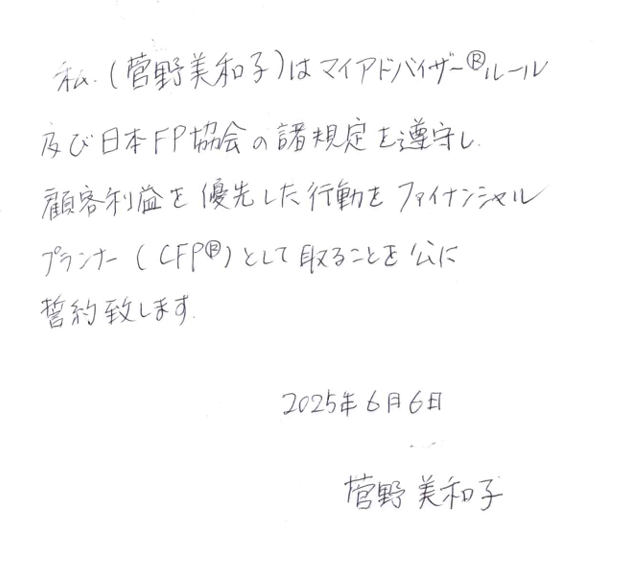 私(菅野美和子)はマイアドバイザー®ルール
及び日本FP協会の諸規定を遵守し
顧客利益を優先した行動をファイナンシャル
プランナー(CFP®)として取ることを公に
誓約致します.
2025年6月6日
菅野美和子